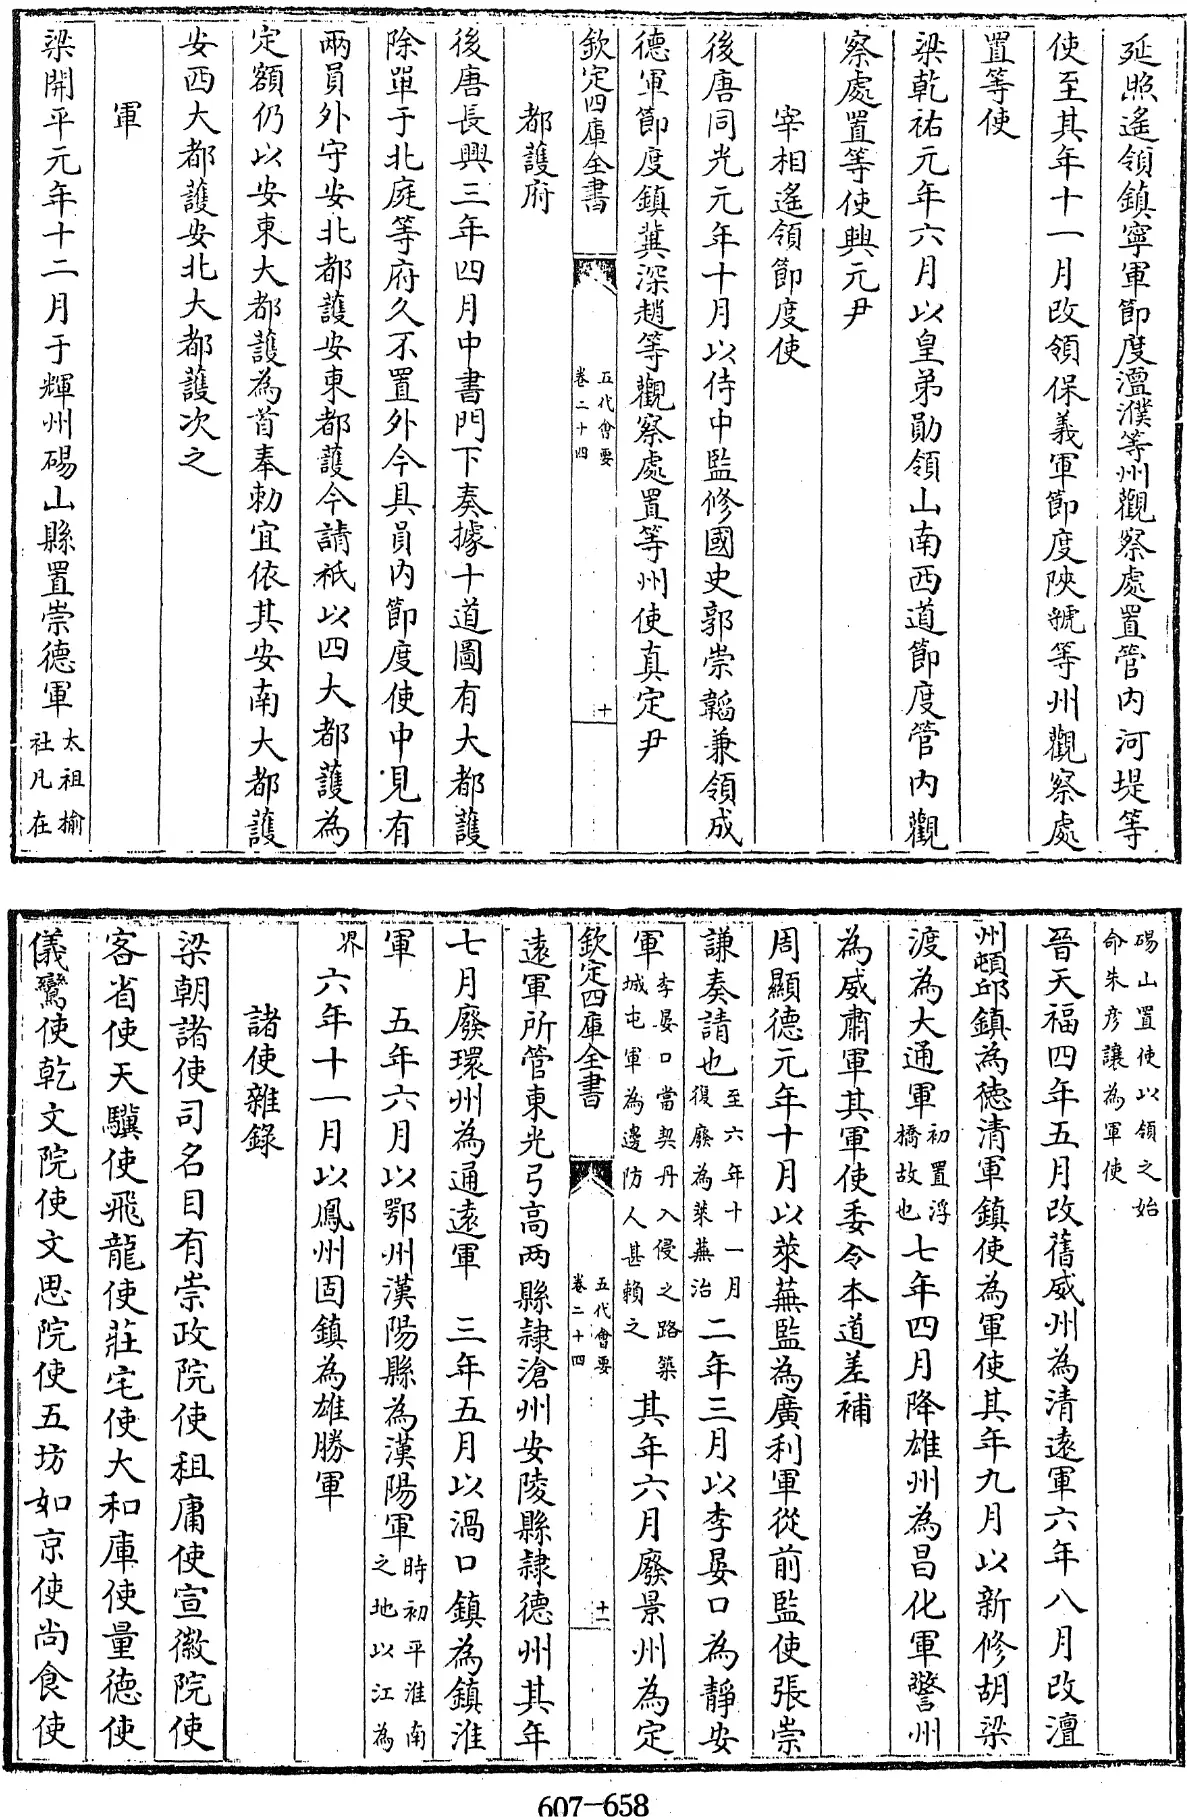 延煦遙領鎮寧軍節度澶濮等州觀察處置管内河堤等
使至其年十一月改領保義軍節度陝虢等州觀察處
置等使
梁乾祐元年六月以皇弟勛領山南西道節度管内觀
察處置等使興元尹
宰相遙領節度使
後唐同光元年十月以侍中監修國史郭崇韜兼領成
德軍節度鎮冀深趙等觀察處置等州使真定尹
欽定四庫全書
五代會要
卷二十四
十
都護府
後唐長興三年四月中書門下奏據十道圖有大都護
除單于北庭等府久不置外今具員内節度使中見有
兩員外守安北都護安東都護今請祇以四大都護為
定額仍以安東大都護為首奉勅宜依其安南大都護
安西大都護安北大都護次之
軍
梁開平元年十二月于輝州碭山縣置崇德軍太祖榆
社凡在
碭山置使以領之始
命朱彥讓為軍使
晉天福四年五月改舊威州為清遠軍六年八月改澶
州頓邱鎮為德清軍鎮使為軍使其年九月以新修胡梁
渡為大通軍初置浮
橋故也七年四月降雄州為昌化軍警州
為威肅軍其軍使委令本道差補
周顯德元年十月以萊蕪監為廣利軍從前監使張崇
謙奏請也至六年十一月
復廢為萊蕪治二年三月以李晏口為靜安
軍李晏口當契丹入侵之路築
城屯軍為邊防人甚賴之其年六月廢景州為定
欽定四庫全書
五代會要
卷二十四
十一
遠軍所管東光弓高两縣隸滄州安陵縣隸德州其年
七月廢環州為通遠軍 三年五月以渦口鎮為鎮淮
軍 五年六月以鄂州漢陽縣為漢陽軍時初平淮南
之地以江為
界 六年十一月以鳳州固鎮為雄勝軍
諸使雜錄
梁朝諸使司名目有崇政院使租庸使宣徽院使
客省使天驥使飛龍使莊宅使大和庫使量德使
儀鸞使乾文院使文思院使五坊如京使尚食使
607-658